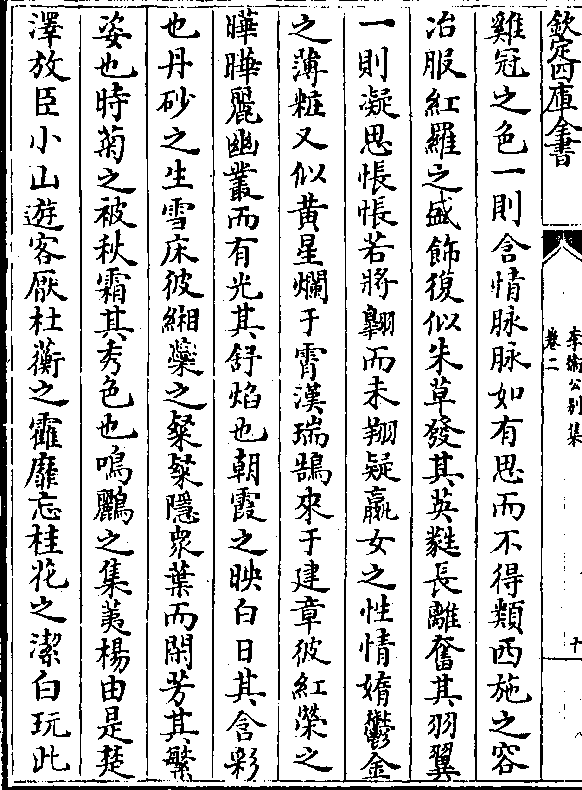 欽定四庫全書
李衛公别集
卷二
十
雞冠之色一則含情脉脉如有思而不得類西施之容
冶服紅羅之盛飾復似朱草發其英蕤長離奮其羽翼
一則凝思悵悵若將翺而未翔疑嬴女之性情媠鬱金
之薄粧又似黄星爛于霄漢瑞鵠來于建章彼紅榮之
曄曄麗幽叢而有光其舒焰也朝霞之映白日其含彩
也丹砂之生雪床彼緗蘂之粲粲隱衆葉而閑芳其繁
姿也時菊之被秋霜其秀色也鳴鸝之集荑楊由是楚
澤放臣小山遊客厭杜蘅之靃靡忘桂花之潔白玩此